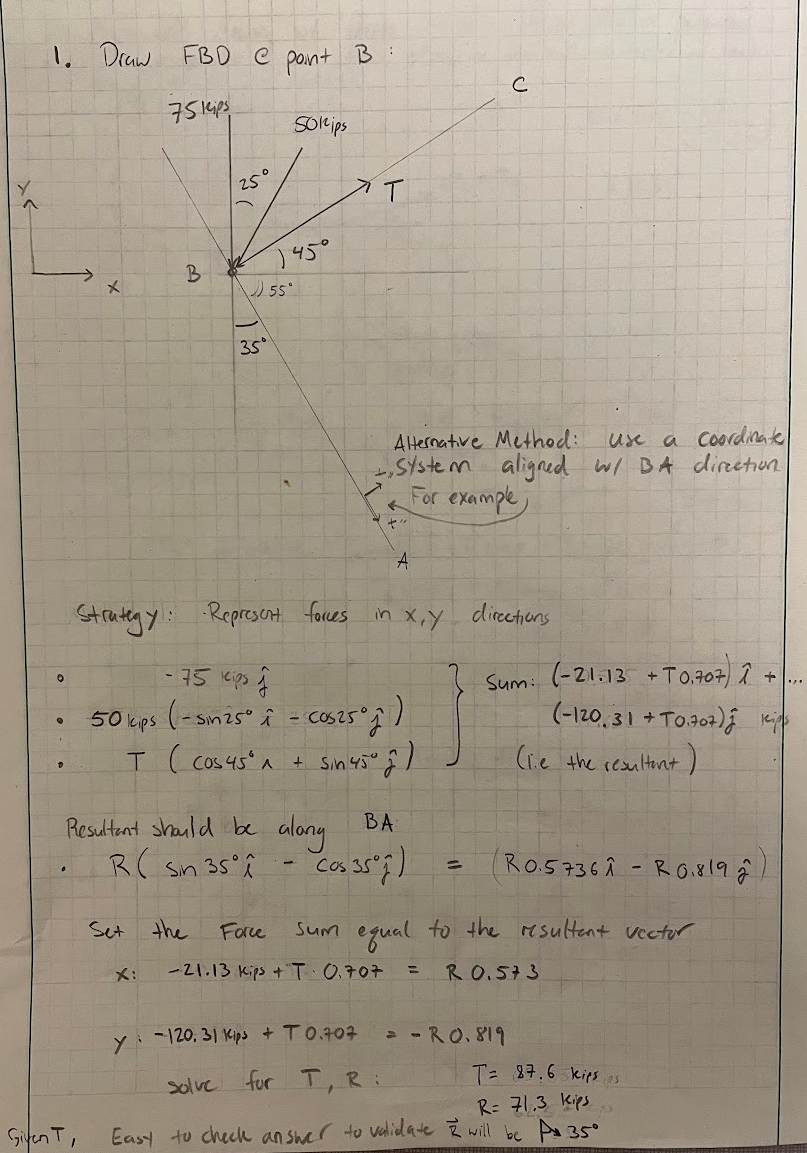 1. Draw FBD @ point B :
C
75 kips
50 kips
25°
T
Y
45°
B
X
55°
35°
Alternative Method: use a coordinate
system aligned w/ BA direction
For example,
+
A
Strategy: Represent forces in x,y directions
• -75 kips ĵ
• 50 kips (-sin25° î - cos25° ĵ)
• T (cos45° ^ + sin45° ĵ)
Sum: (-21.13 + T0.707) î + ...
(-120.31 + T0.707) ĵ kips
(i.e the resultant)
Resultant should be along BA
• R( sin 35° î - cos 35° ĵ) = (R0.5736 î - R 0.819 ĵ)
Set the Force sum equal to the resultant vector
x: -21.13 kips + T · 0.707 = R 0.573
y: -120.31 kips + T 0.707 = - R 0.819
solve for T, R :
T= 87.6 kips
R= 71.3 kips
Given T, Easy to check answer to validate R⃗ will be 35°